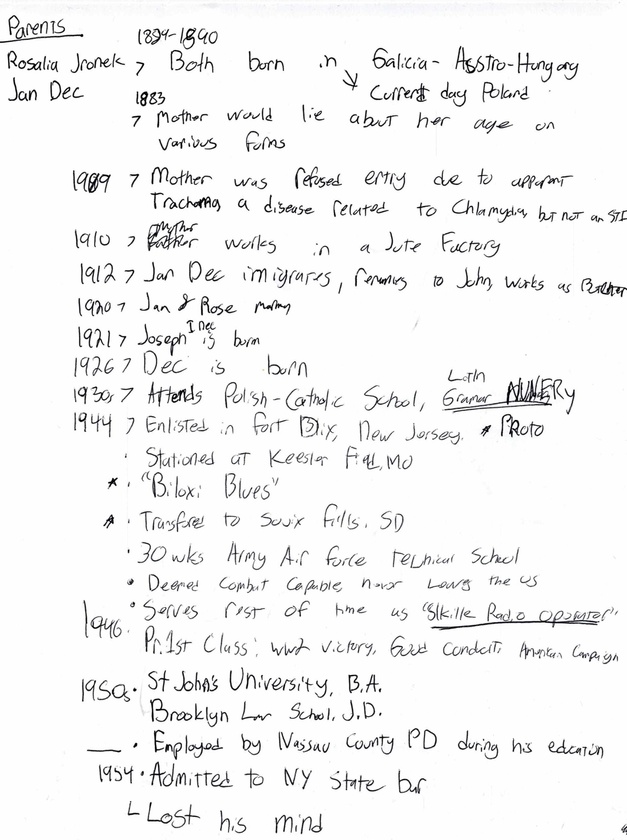 Parents
1889-1890
Rosalia Jronek > Both born in Galicia - Asstro-Hungary
Jan Dec ↘ Current day Poland
1883
> Mother would lie about her age on
various forms
1909 > Mother was refused entry due to apparent
Trachoma, a disease related to Chlamydia, but not an STI
1910 > mother works in a Jute Factory
1912 > Jan Dec imigrares, renames to John, works as Butcher
1920 > Jan & Rose marry
1921 > Joseph I Dec is born
1926 > Dec is born
1930s > Attends Polish-Catholic School, Latin Gramar NUNERY
1944 > Enlisted in Fort Dix, New Jersey. * PROTO
· Stationed at Keesler Field, MO
* · "Biloxi Blues"
* · Transfered to Souix Falls, SD
· 30 wks Army Air force Technical School
· Deemed Combat Capable, never Leaves the US
· Serves rest of time as "Slkille Radio Operator"
1946. Pr. 1st Class; ww2 victory, Good Conduct, American Campaign
1950s · St John's University, B.A.
Brooklyn Law School, J.D.
— · Employed by Nassau County PD during his education
1954 · Admitted to NY State bar
└ Lost his mind